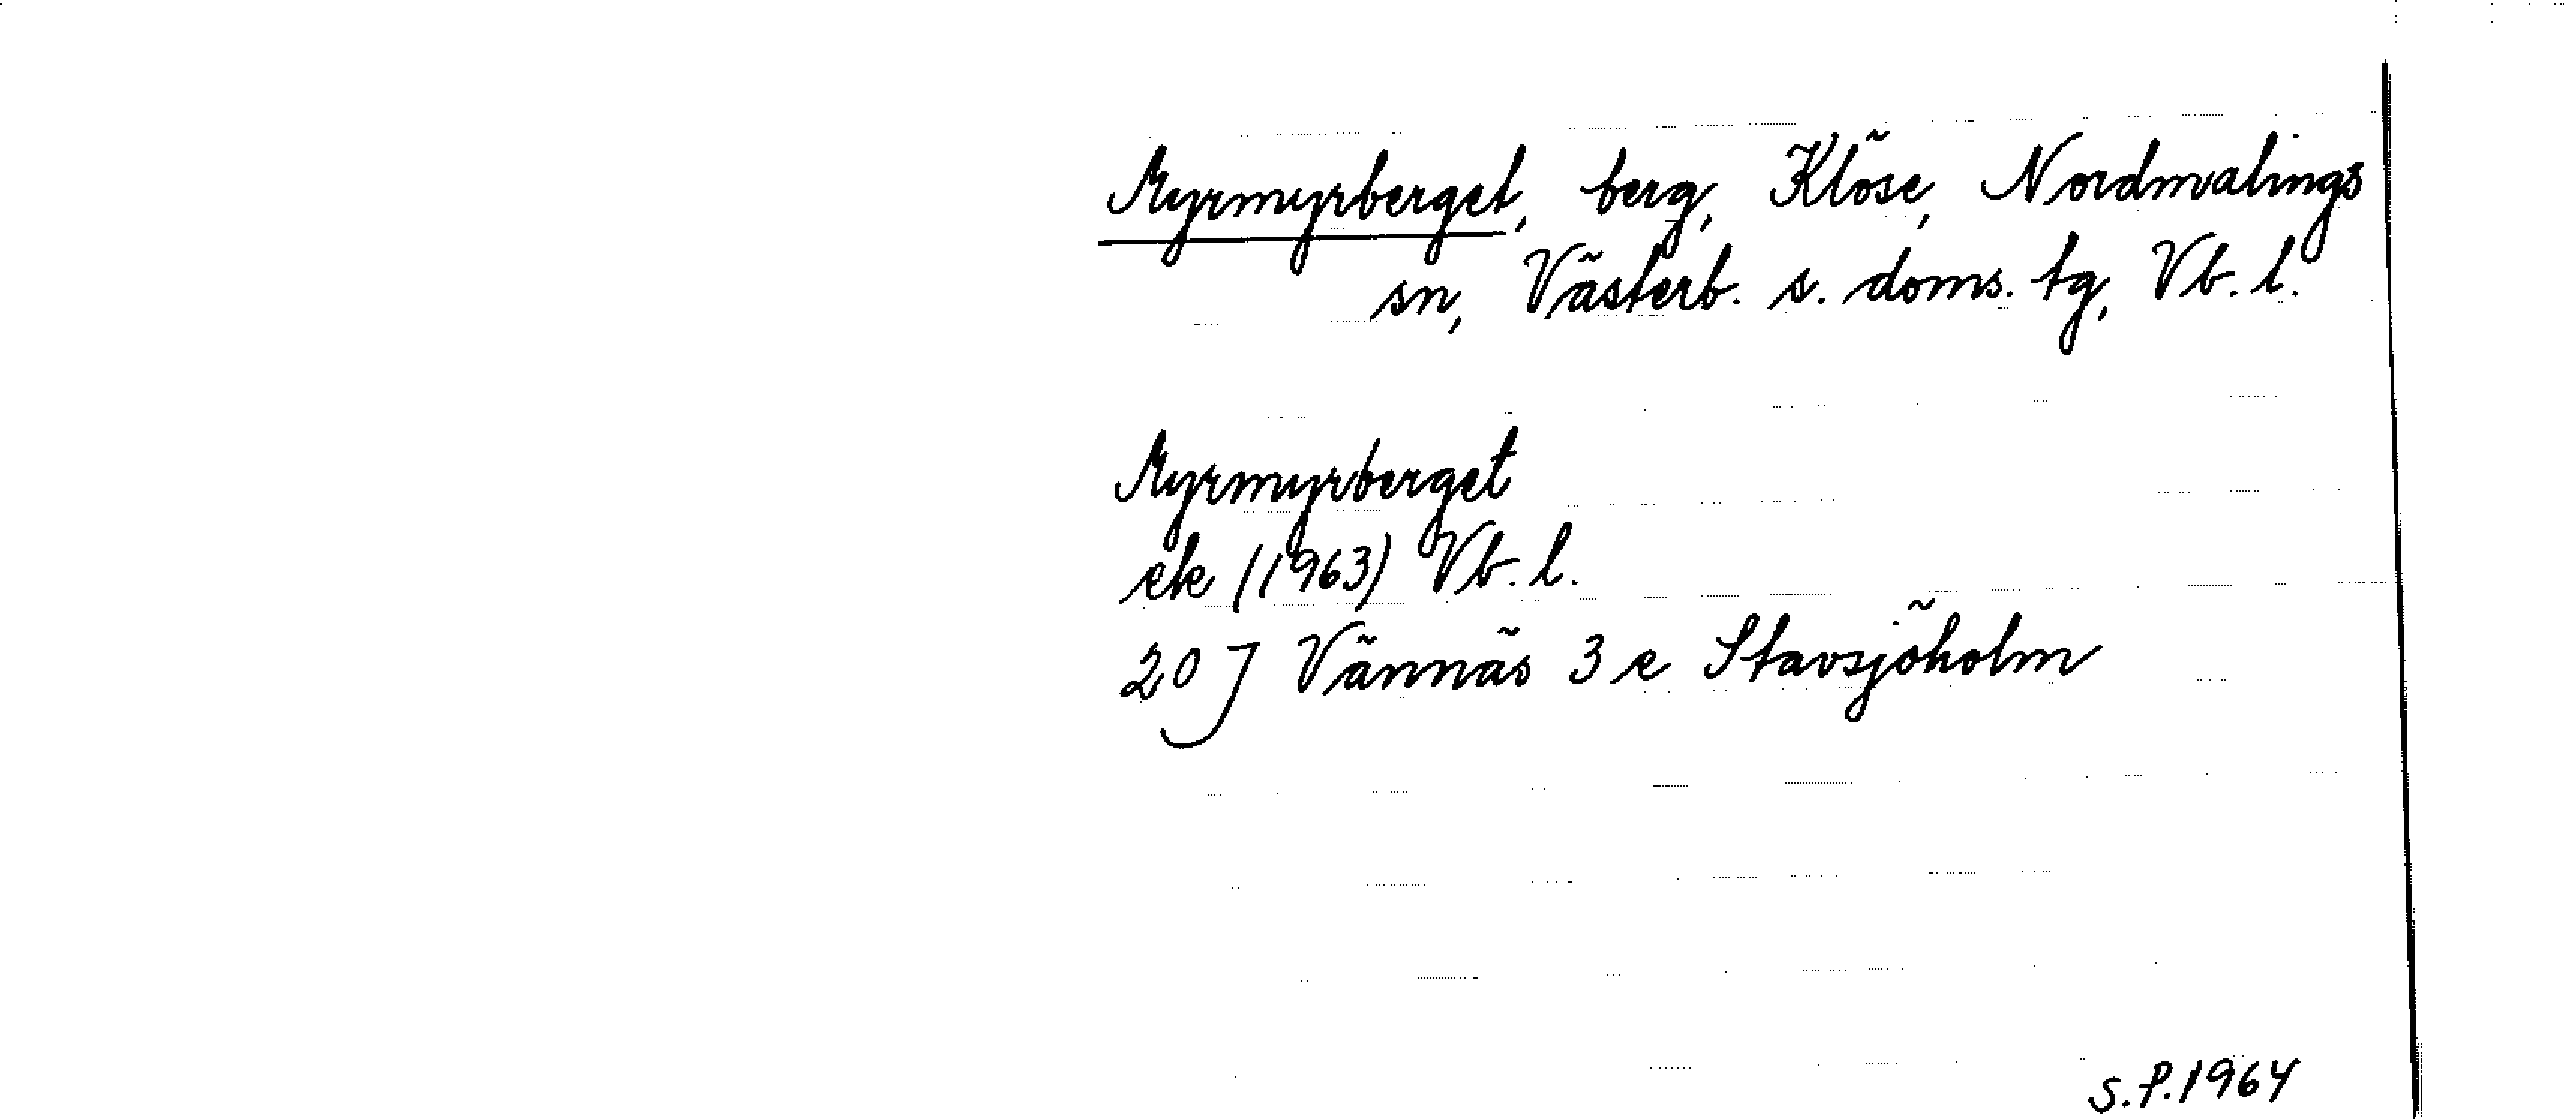 Myrmyrberget, berg, Klöse, Nordmalings
sn, Västerb. s. doms. tg, Vb. l.
Myrmyrberget
ek (1963) Vb. l.
20 J Vännäs 3 e Stavsjöholm
S.P. 1964